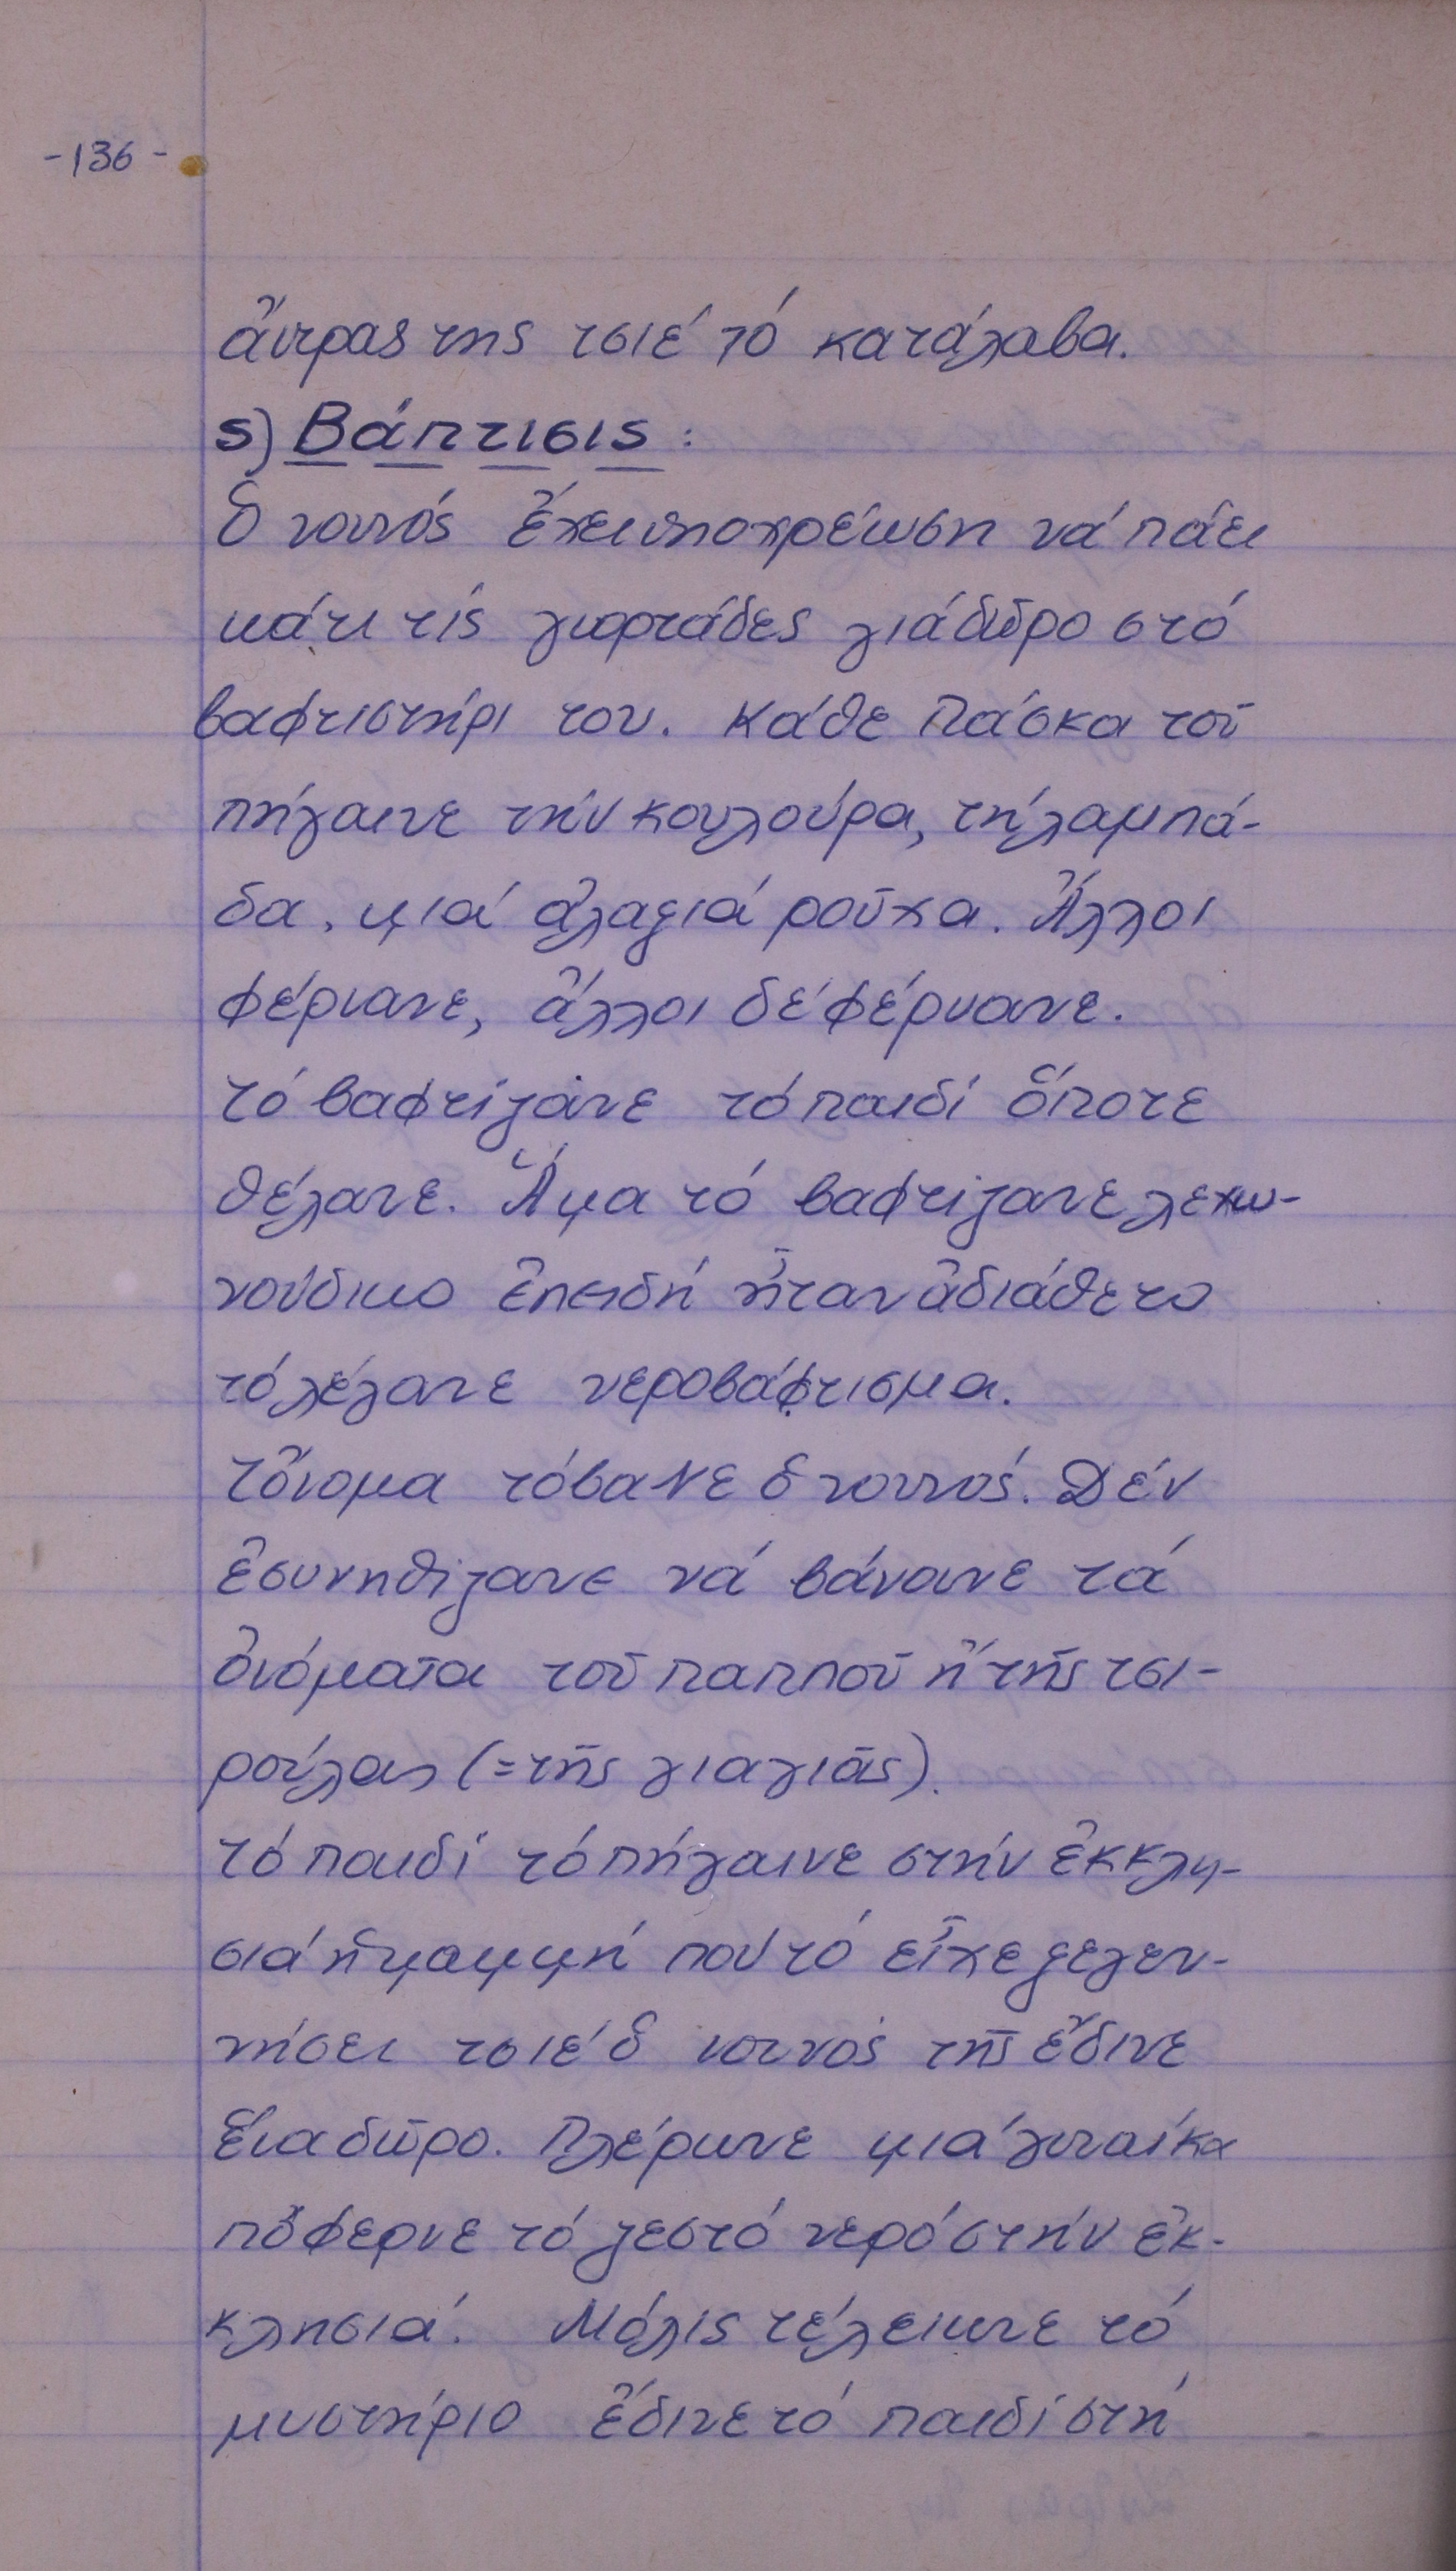 -136-
ἄντρας της τσιέ τό κατάλαβα.
ς) Βάπτισις:
Ὁ νουνός ἔχει ὑποχρέωση νά πάει
κάτι τίς γιορτάδες γιά δῶρο στό
βαφτιστήρι του. Κάθε Πάσκα τοῦ
πήγαινε τήν κουλούρα, τή λαμπά-
δα, μιά ἀλαξιά ροῦχα. Ἄλλοι
φέρνανε, ἄλλοι δέ φέρνανε.
Τό βαφτίζανε τό παιδί ὅποτε
θέλανε. Ἅμα τό βαφτίζανε λεχω-
νούδικο ἐπειδή ἦταν ἀδιάθετο
τό λέγανε νεροβάφτισμα.
Τὄνομα τόβανε ὁ νουνός. Δέν
ἐσυνηθίζανε νά βάνανε τά
ὀνόματα τοῦ παππού ἤ τῆς τσι-
ρούλας (=τῆς γιαγιᾶς).
Τό παιδί τό πήγαινε στήν ἐκκλη-
σιά ἡ μαμμή πού τό εἶχε ξεγεν-
νήσει τσιέ ὁ νουνός τῆς ἔδινε
ἕνα δῶρο. Πλέρωνε μιά γυναίκα
πὄφερνε τό ζεστό νερό στήν ἐκ-
κλησιά. Μόλις τέλειωνε τό
μυστήριο ἔδινε τό παιδί στή